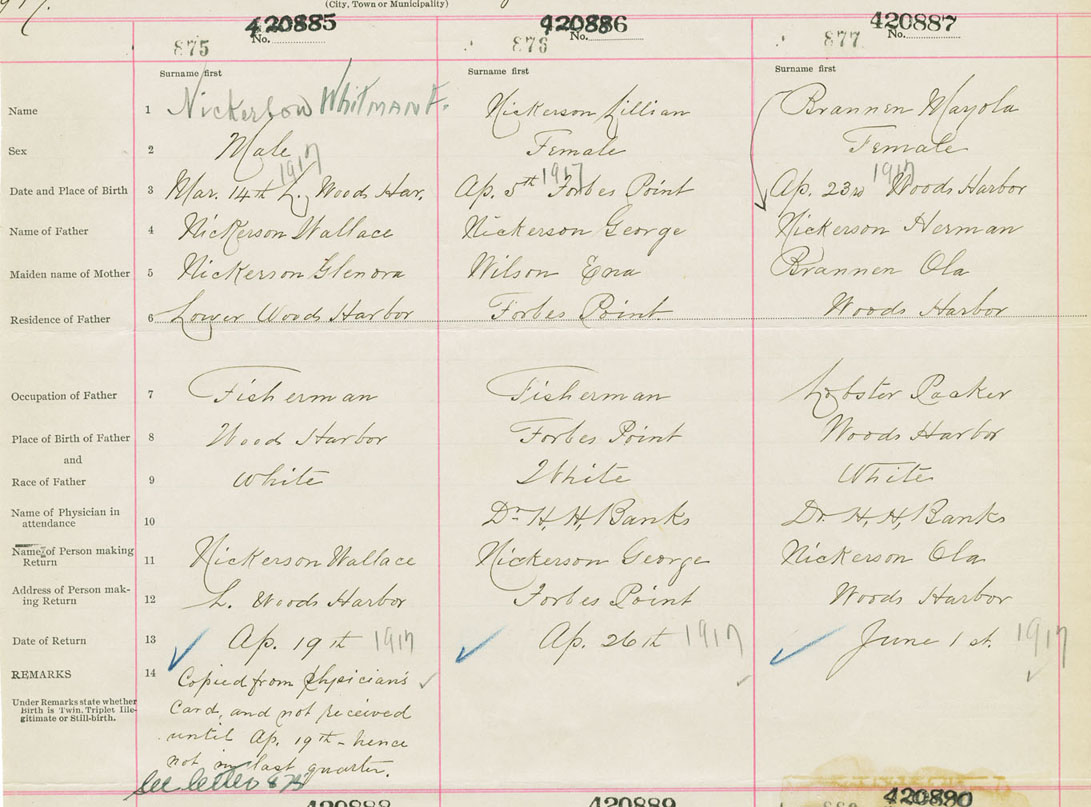 1917.
(City, Town or Municipality)
420885 420886 420887
No. No. No.
875 876 877
Surname first Surname first Surname first
Name 1 Nickerson Whitman F. Nickerson Lillian Brannen Mayola
Sex 2 Male Female Female
1917 1917 1917
Date and Place of Birth 3 Mar. 14th L. Woods Har. Ap. 5th Forbes Point Ap. 23rd Woods Harbor
Name of Father 4 Nickerson Wallace Nickerson George Nickerson Herman
Maiden name of Mother 5 Nickerson Glenora Wilson Ena Brannen Ola
Residence of Father 6 Lower Woods Harbor Forbes Point. Woods Harbor
Occupation of Father 7 Fisherman Fisherman Lobster Packer
Place of Birth of Father 8 Woods Harbor Forbes Point Woods Harbor
and
Race of Father 9 White White White
Name of Physician in
attendance 10 Dr H, H, Banks Dr. H, H, Banks
Name of Person making
Return 11 Nickerson Wallace Nickerson George Nickerson Ola
Address of Person mak-
ing Return 12 L. Woods Harbor Forbes Point Woods Harbor
Date of Return 13 Ap. 19th 1917 Ap. 26th 1917 June 1st. 1917
REMARKS 14 Copied from Physician's
Under Remarks state whether
Birth is Twin. Triplet Ille-
gitimate or Still-birth.
Card, and not received
until Ap. 19th - hence
not in last quarter.
See letter 875
420888 420889 420890
880